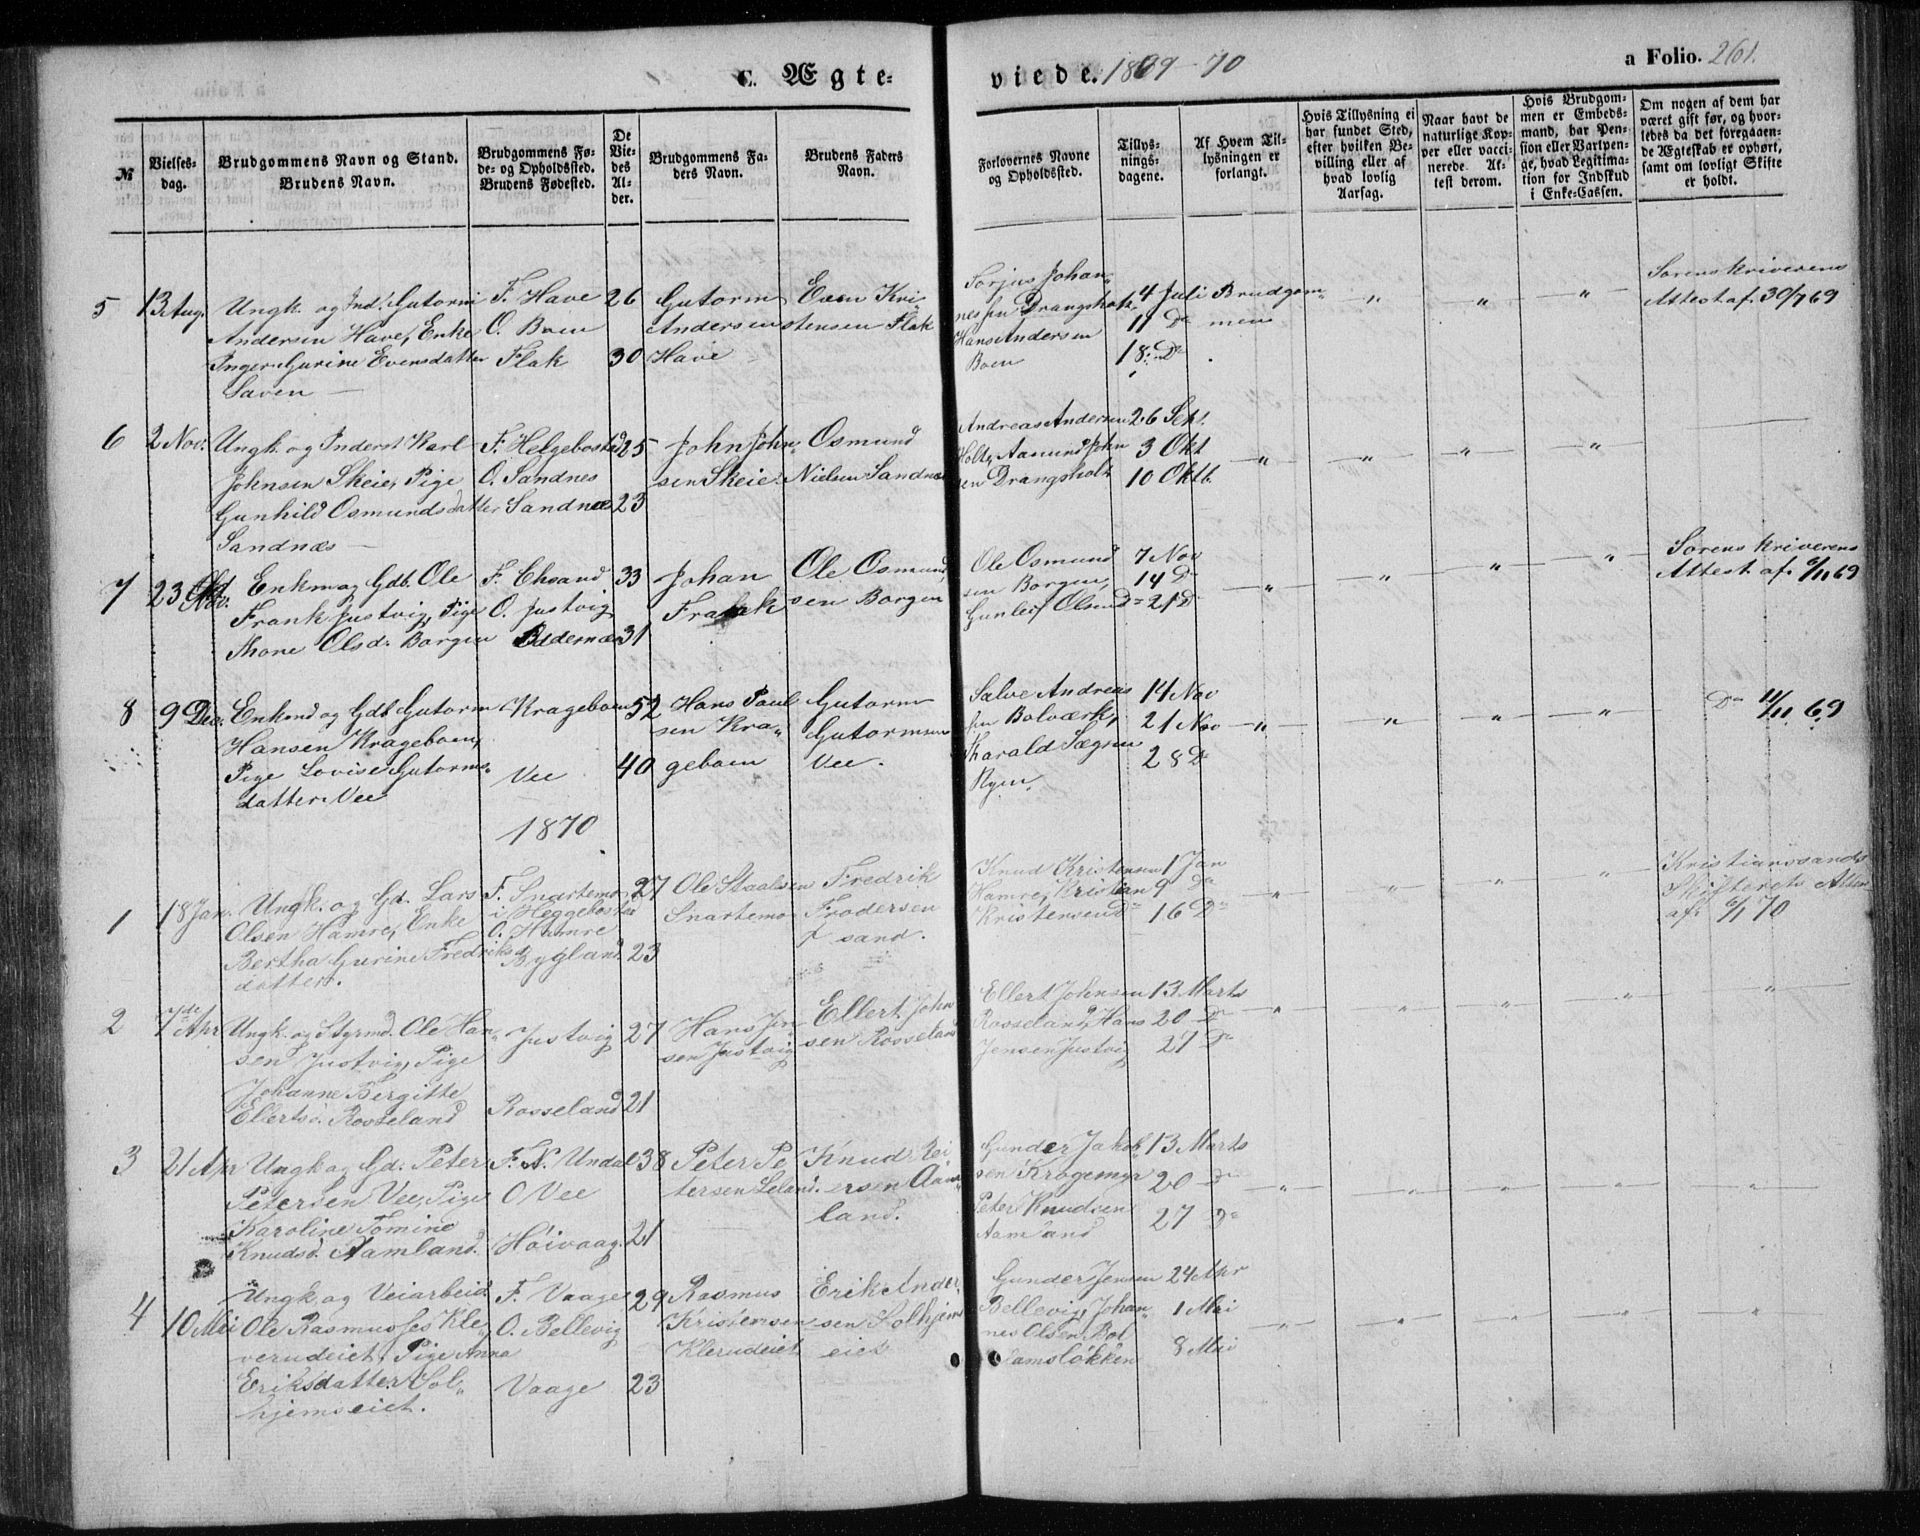 C. Ægte-
viede. 1869-70
a Folio. 261.
№
Vielses-
dag.
Brudgommens Navn og Stand.
Brudens Navn.
Brudgommens Fø-
de- og Opholdssted.
Brudens Fødested.
De
Vie-
des
Al-
der.
Brudgommens Fa-
ders Navn.
Brudens Faders
Navn.
Forlovernes Navne
og Opholdssted.
Tillys-
nings-
dagene.
Af Hvem Til-
lysningen er
forlangt.
Hvis Tillysning ei
har fundet Sted,
efter hvilken Be-
villing eller af
hvad lovlig
Aarsag.
Naar havt de
naturlige Kop-
per eller vacci-
nerede. At-
test derom.
Hvis Brudgom-
men er Embeds-
mand, har Pen-
sion eller Vartpen-
ge, hvad Legitima-
tion for Indskud
i Enke-Cassen.
Om nogen af dem har
været gift før, og hvor-
ledes da det foregaaen-
de Ægteskab er ophørt,
samt om lovligt Skifte
er holdt.
5
13 Aug.
Ungk. og Ind. Gutorm
Andersen Have, Enke
Inger Gurine Evensdatter
Saven
F. Have
O. Boen
Flak
26
30
Gutorm
Andersen
Have
Even Kri
stensen Flak
Sorjus Johan
nessen Drangsholt,
Hans Andersen
Boen
4 Juli
11 Do
18 Do
Brudgom
men
"
"
"
Sorenskriverens
Attest af 30/7 69
6
2 Nov.
Ungk. og Inderst Karl
Johnsen Skeie, Pige
Gunhild Osmundsdatter
Sandnæs
F. Helgebostad
O. Sandnes
Sandnæs
25
23
John John
sen Skeie
Osmund
Nielsen Sandnæs
Andreas Andersen
Holte, Aamund John
sen Drangsholt
26 Sept.
3 Okt
10 Oktb.
"
"
"
"
7
23 Nov.
Enkem og Gdb. Ole
Frank Justvig, Pige
Thone Olsd. Borgen
F. Chsand
O. Justvig
33
31
Johan
Frank
Ole Osmund
sen Borgen
Ole Osmund
sen Borgen,
Gunleif Olsen Do
7 Nov
14 Do
21 Do
"
"
"
"
Sorenskriverens
Attest af 6/11 69
8
9 Dec.
Enkemd og Gdb. Gutorm
Hansen Krageboen,
Pige Lovise Gutorms
datter Vee
Krageboen
Vee
52
40
Hans Paul
sen Kra
geboen
Gutorm
Gutormsen
Vee.
Salve Andreas
sen Bolværk,
Tharald Sægsen
Ryen.
14 Nov
21 Nov
28 Do
"
"
"
"
Do 11/11 69
1870
1
18 Jan.
Ungk. og Gd. Lars
Olsen Hamre, Enke
Bertha Gurine Fredriks
datter.
F. Snartemo
i Heggebostad
O. Hamre
Bygland
27
23
Ole Staalsen
Snartemo
Fredrik
Frodersen
sand.
Knud Kristensen
Hamre, Kristen
Kristensen Do
1 Jan
9 Do
16 Do
"
"
"
"
Kristianssands
Skifterets Attest
af 6/1 70
2
7de Apr
Ungk. og Styrmd. Ole Han
sen Justvig, Pige
Johanne Bergitte
Ellertsd. Rosseland
Justvig
Rosseland
27
21
Hans Jen
sen Justvig
Ellert John
sen Rosseland
Ellert Johnsen
Rosseland, Hans
Jensen Justvig
13 Marts
20 Do
27 Do
"
"
"
"
"
3
21 Apr
Ungk og Gd. Peter
Petersen Vee, Pige
Karoline Tomine
Knudsd. Aamland.
F. N. Undal
O Vee
Höivaag
38
21
Peter Pe
tersen Leland.
Knud Rei
ersen Aam
land.
Gunder Jakob
sen Kragemyr
Peter Knudsen
Aamland
13 Marts
20 Do
27 Do
"
"
"
"
"
4
10 Mai
Ungk og Veiarbeid
Ole Rasmusses Kle
verudeiet, Pige Anna
Eriksdatter Sol
hjemseiet.
F. Vaage
O. Bellevig
Vaage
29
23
Rasmus
Kristensen
Klerudeiet
Erik Ander
sen Solhjems
eiet
Gunder Jensen
Bellevig, Johan
nes Olsen Bol
damslökken
24 Apr
1 Mai
8 Mai
"
"
"
"
"